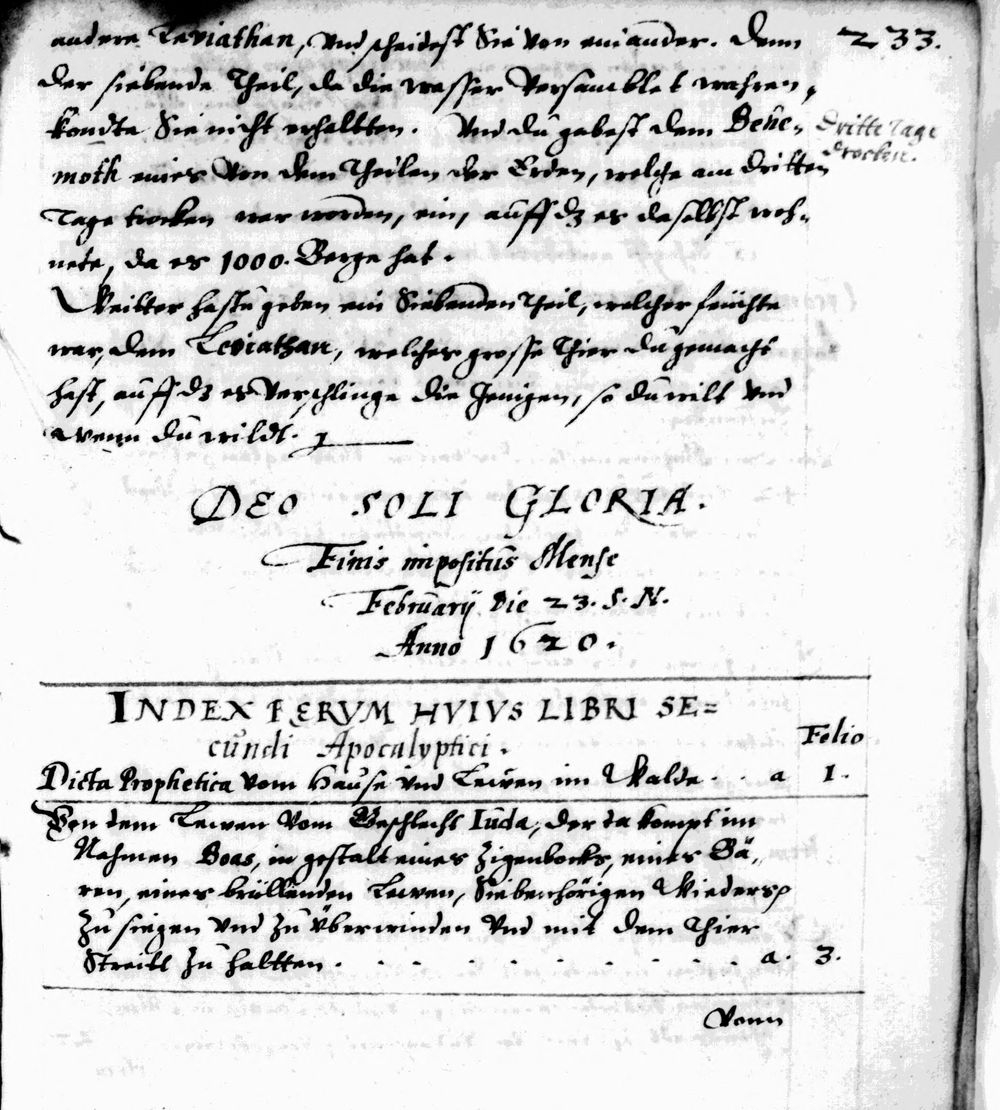 233.
andere Leviathan, und scheidest Sie von einander. Denn
der siebende Theil, da die wasser Versamblet wahren,
kondte Sie nicht erhaltten. Und du gabest dem Behe-
Dritte Tage
drocken.
moth eines Von dem Theilen der Erden, welche am dritten
Tage trocken war worden, ein, auff dz es daselbst woh-
nete, da es 1000. Berge hat.
Weitter hastu geben ein Siebenden Theil, welcher feuchte
war, dem Leviathan, welches grosse Thier du gemacht
hast, auff dz es Verschlinge die Jenigen, so du wilt und
wenn du wildt.
DEO SOLI GLORIA.
Finis impositus Mense
Februarij Die 23. S. N.
Anno 1620.
INDEX RERVM HVIVS LIBRI SE=
cundi Apocalyptici.
Felio
Dicta Prophetica vom Hause und Leuen im Walde . . a 1.
Von dem Leuen Vom Geschlecht Iuda, der da kompt im
Nahmen Boas, in gestalt eines Zigenbocks, eines Bä,,
ren, eines brüllenden Leuen, Siebenhörigen Wieders
Zu siegen und Zu überwinden Und mit dem Thier
Streitt Zu haltten . . . . . . . . . . . a. 3.
Vonn